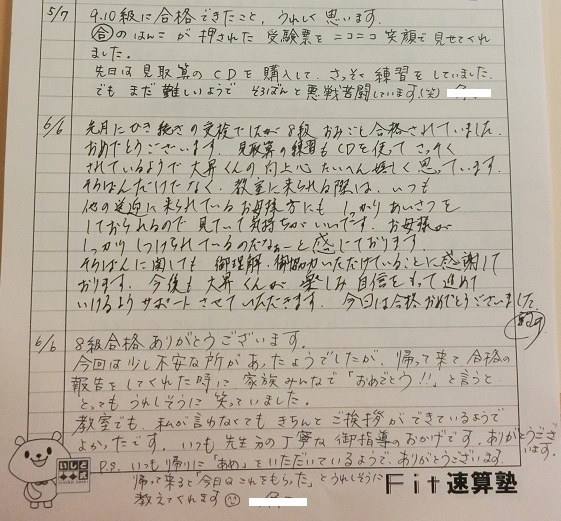 5/7 9.10級に合格できたこと、うれしく思います。
㊕のはんこが押された受験票をニコニコ笑顔で見せてくれ
ました。
先日は見取算のCDを購入して、さっそく練習をしていました。
でもまだ難しいようでそろばんと悪戦苦闘しています(笑)
6/6 先月にひき続きの受検でしたが8級おみごと合格されていました。
おめでとうございます。見取算の練習もCDを使ってさっそく
されているようで大昇くんの向上心たいへん嬉しく思っています。
そろばんだけでなく、教室に来られる際は、いつも
他の送迎に来られているお母様方にもしっかりあいさつを
しておられるので見ていて気持ちがいいです。お母様が
しっかりしつけられているのだなぁーと感じております。
そろばんに関しても御理解、御協力いただけていることに感謝して
おります。今後も大昇くんが楽しみ自信をもって進めて
いけるようサポートさせていただきます。今回は合格おめでとうございました。
6/6 8級合格ありがとうございます。
今回は少し不安な所があったようでしたが、帰って来て合格の
報告をしてくれた時に家族みんなで「おめでとう!!」と言うと
とってもうれしそうに笑っていました。
教室でも、私が言わなくてもきちんとご挨拶ができているようで
よかったです。いつも先生方の丁寧な御指導のおかげです。ありがとうござ
います。
P.S. いつも帰りに「あめ」をいただいているようで、ありがとうございます
帰って来ると「今日はこれをもらった」とうれしそうに
教えてくれます
Fit速算塾